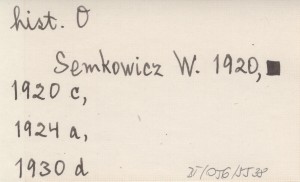 hist. O
Semkowicz W. 1920, ■
1920 c,
1924 a,
1930 d